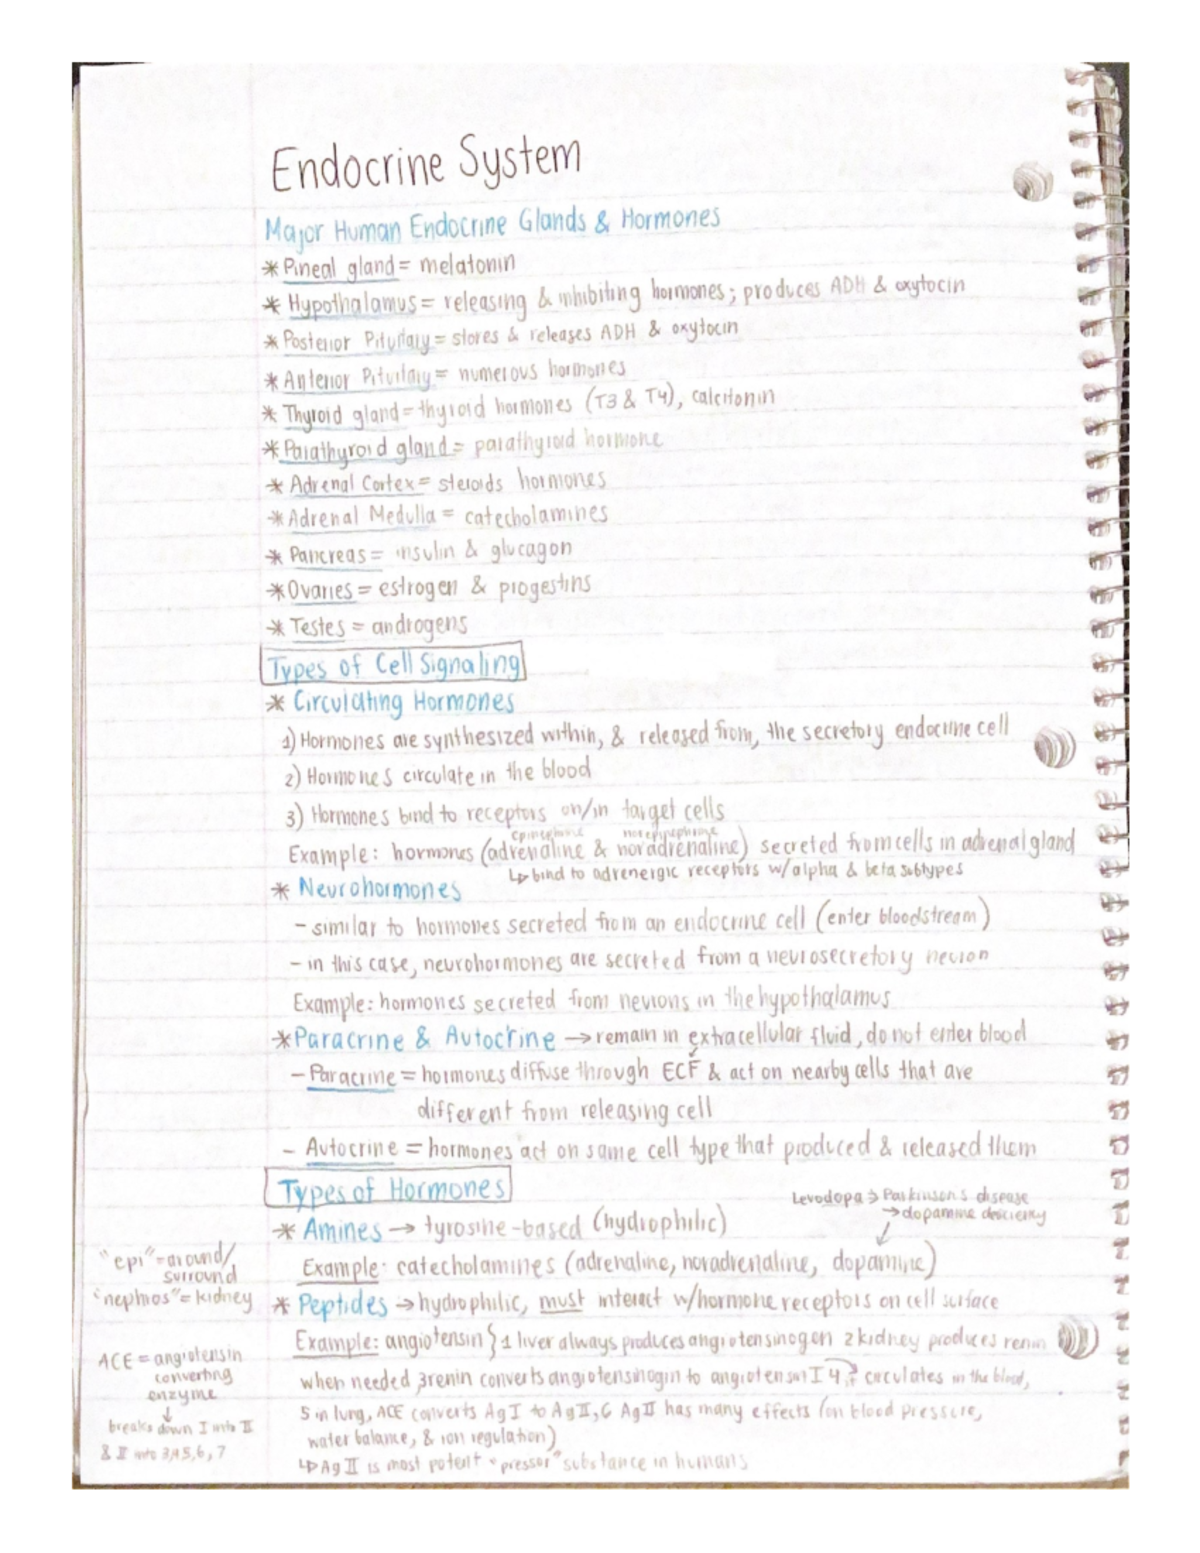 Endocrine System
Major Human Endocrine Glands & Hormones
* Pineal gland = melatonin
* Hypothalamus = releasing & inhibiting hormones; produces ADH & oxytocin
* Posterior Pituitary = stores & releases ADH & oxytocin
* Anterior Pituitary = numerous hormones
* Thyroid gland = thyroid hormones (T3 & T4), calcitonin
* Parathyroid gland = parathyroid hormone
* Adrenal Cortex = steroids hormones
* Adrenal Medulla = catecholamines
* Pancreas = insulin & glucagon
* Ovaries = estrogen & progestins
* Testes = androgens
Types of Cell Signaling
* Circulating Hormones
1) Hormones are synthesized within, & released from, the secretory endocrine cell
2) Hormones circulate in the blood
3) Hormones bind to receptors on/in target cells
epinephrine norepinephrine
Example: hormones (adrenaline & noradrenaline) secreted from cells in adrenal gland
↳ bind to adrenergic receptors w/alpha & beta subtypes
* Neurohormones
- similar to hormones secreted from an endocrine cell (enter bloodstream)
- in this case, neurohormones are secreted from a neurosecretory neuron
Example: hormones secreted from neurons in the hypothalamus
* Paracrine & Autocrine → remain in extracellular fluid, do not enter blood
- Paracrine = hormones diffuse through ECF & act on nearby cells that are
different from releasing cell
- Autocrine = hormones act on same cell type that produced & released them
Types of Hormones
Levodopa → Parkinson's disease
→ dopamine deficiency
* Amines → tyrosine-based (hydrophilic)
Example: catecholamines (adrenaline, noradrenaline, dopamine)
"epi" = around/
surround
"nephros" = kidney
* Peptides → hydrophilic, must interact w/hormone receptors on cell surface
Example: angiotensin } 1 liver always produces angiotensinogen 2 kidney produces renin
when needed, 3 renin converts angiotensinogin to angiotensin I 4 circulates in the blood,
5 in lung, ACE converts Ag I to Ag II, 6 Ag II has many effects (on blood pressure,
water balance, & ion regulation)
↳ Ag II is most potent "pressor" substance in humans
ACE = angiotensin
converting
enzyme
↓
breaks down I into II
& II into 3,4,5,6,7